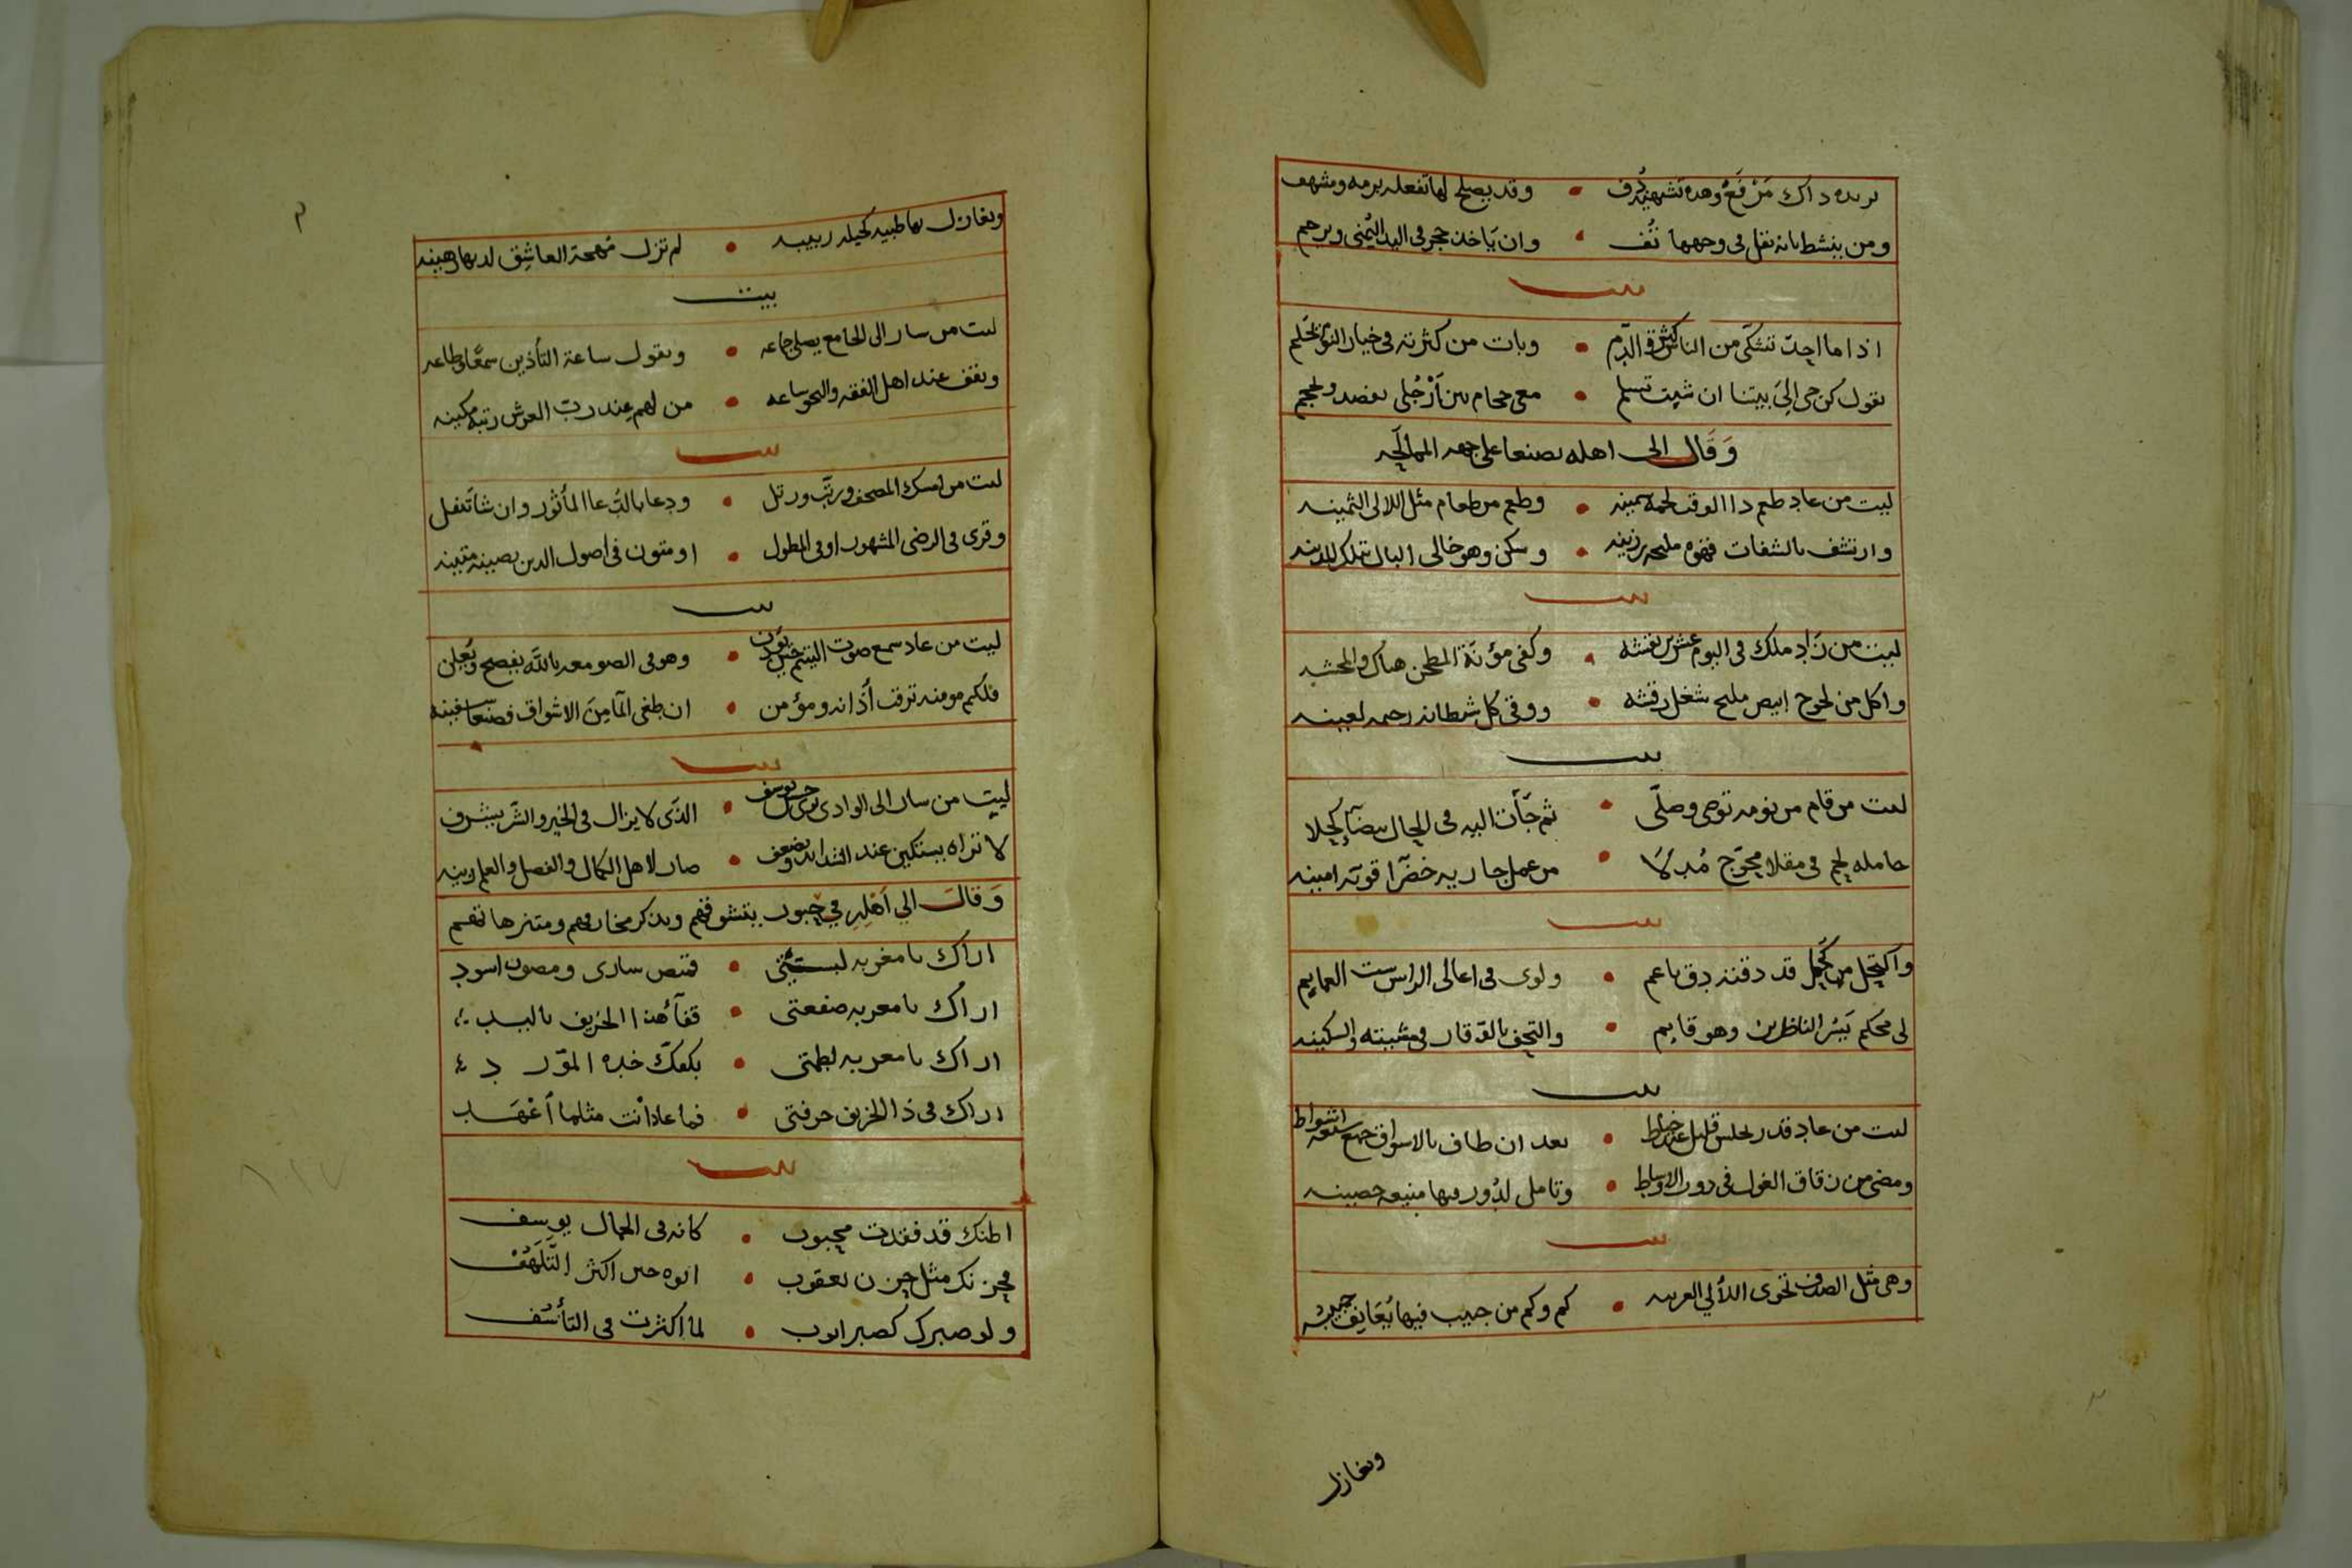 يريده داك مرفع وهده تشهيد دف • وقد يصلح لها تفعله برمه ومشهف
ومن ينشط بانه تفل في وجهها تُف • وان ياخذ حجر في اليد اليُمنى ويرجم
بيت
اذا ما احِد تشكّى من الناس كثرة الدّم • وبات من كثرته في خيار النوم
يقول كن جي الىَ بيتنا ان شيت تسلم • معي محجام بين اَرْجُلي يفصد ويحجم
وَقَال الى اهله بصنعا على جهه الممالحه
ليت من عاد طعم دا الوقت لحمه سمينه • وطعم من طعام مثل اللالى الثمينه
وارتشف بالشفات قهوه مليحه رزينه • وسكن وهو خالى البال تلك المدينه
بيت
ليت من زَاد ملك في اليوم عشرين بقشه • وكفى مؤنة المطحن هناك والمحشه
واكل من لحوح ابيض مليح شغل رقشه • ووقى كل شيطانه رحيمه لعينه
بيت
ليت من قام من نومه توضى وصلّى • ثم جَأت اليه في الحال بيضآ كحلا
حامله لحم في مقلا محوّج مُدلاّ • من عمل جاريه خضرا قويه امينه
بيت
واكتحل من كُحل قد دقنه دق ناعم • ولوى في اعالى الراس ست العمايم
لى محكم يَسُر الناظرين وهو قايم • والتحف بالوقار في مشيته والسكينه
بيت
ليت من عاد قدر يجلس قليل عند خياط • بعد ان طاف بالاسواق جمع سبعه اشواط
ومضى من زقاق الغول في دور الاوساط • وتامل لدُور فيها منيعه حصينه
بيت
وهي مثل الصدف تحوى اللألي الغريبه • كم وكم من حبيب فيها يُعَانِق حبيبه
ويغازل
ويغازل بها ظبيه كحيله ربيبه • لم تزل مُهجة العاشِق لديها رهينه
بيت
ليت من سار الى الجامع يصلى جماعه • ويقول ساعة التأذين سمعًا وطاعه
ويقف عند اهل الفقه والنحو ساعه • من لهم عند ربّ العرش رتبه مكينه
بيت
ليت من امسك المصحف ورتّب ورتل • ودعا بالدُعا المأثور وان شا تنفل
وقرى في الرضى المشهور او في المطول • او متون في اصول الدين رصينه متينه
بيت
ليت من عاد سمع صوت اليتيم حين يؤذن • وهو في الصومعه بالله يفصح ويُعلن
فلكم مومنه ترقب أذانه ومؤمن • ان طغى المآ مِنَ الاشواق فصنعا سفينه
بيت
ليت من سار الى الوادى يرى حسن يوسف • الذّى لا يزال في الخير والشر يشرف
لا تراه يستكين عند الشدايد ويضعف • صار لاهل الكمال والفضل والعلم زينه
وَقالَ الي اَهْلِهِ في حُبور يتشوقهم ويدكر مخارفهم ومتنزهاتهم
اراك يا مغربه لبستنى • قميص سارى ومصون اسود
اراك يا مغربه صفعتى • قفآ هذا الخريف باليد
اراك يا مغربه لطمتى • بكفك خده المورد
اراك في ذا الخريف حرفتى • فما عاد اْنت مثلما أعْهَد
بيت
اظنك قد فقدت محبوب • كانه في الجمال يوسف
فحزنك مثل حزن يعقوب • ابوه حين اكثر التَّلَهُّفْ
ولو صبرك كصبر ايوب • لما اكثرت في التأسّف